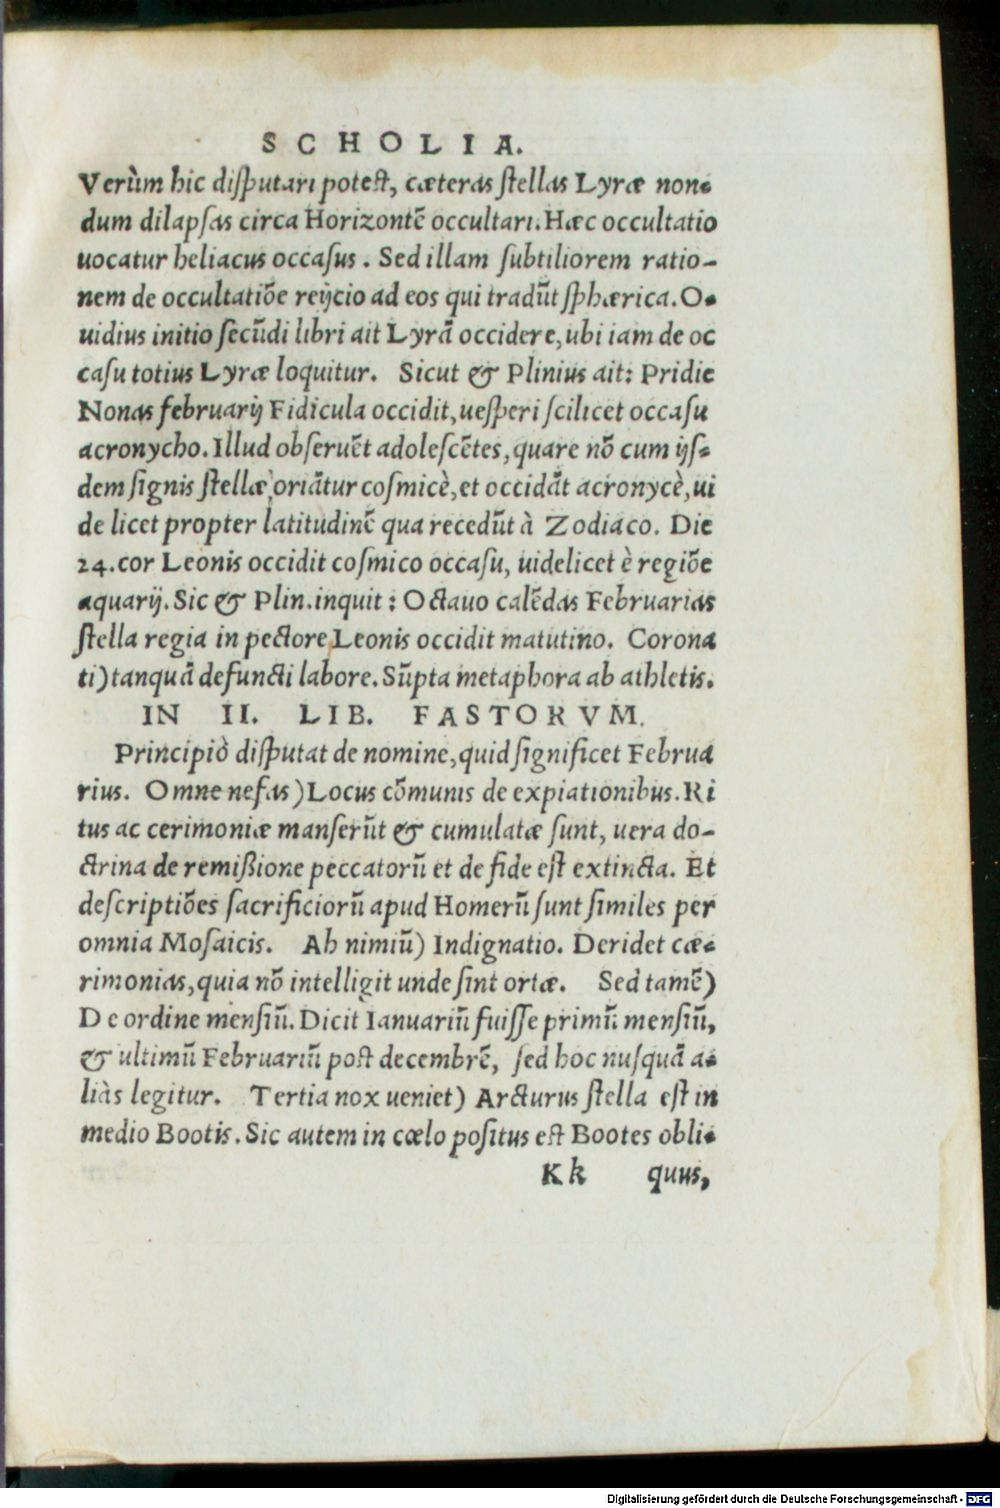 SCHOLIA.
Verùm hic diſputari poteſt, cæteras ſtellas Lyræ non-
dum dilapſas circa Horizontẽ occultari. Hæc occultatio
uocatur heliacus occaſus. Sed illam ſubtiliorem ratio-
nem de occultatiõe reijcio ad eos qui tradũt ſphærica. O-
uidius initio ſecũdi libri ait Lyrã occidere, ubi iam de oc
caſu totius Lyræ loquitur. Sicut & Plinius ait: Pridie
Nonas februarij Fidicula occidit, ueſperi ſcilicet occaſu
acronycho. Illud obſeruẽt adoleſcẽtes, quare nõ cum ijſ-
dem ſignis ſtellæ oriãtur coſmicè, et occidãt acronycè, ui
delicet propter latitudinẽ qua recedũt à Zodiaco. Die
24. cor Leonis occidit coſmico occaſu, uidelicet è regiõe
aquarij. Sic & Plin. inquit: Octauo calẽdas Februarias
ſtella regia in pectore Leonis occidit matutino. Corona
ti) tanquã defuncti labore. Sũpta metaphora ab athletis.
IN II. LIB. FASTORVM.
Principiò diſputat de nomine, quid ſignificet Februa
rius. Omne nefas) Locus cõmunis de expiationibus. Ri
tus ac cerimoniæ manſerũt & cumulatæ ſunt, uera do-
ctrina de remißione peccatorũ et de fide eſt extincta. Et
deſcriptiões ſacrificiorũ apud Homerũ ſunt ſimiles per
omnia Moſaicis. Ah nimiũ) Indignatio. Deridet cæ-
rimonias, quia nõ intelligit unde ſint ortæ. Sed tamẽ)
De ordine menſiũ. Dicit Ianuariũ fuiſſe primũ menſiũ,
& ultimũ Februariũ poſt decembrẽ, ſed hoc nuſquã a-
liàs legitur. Tertia nox ueniet) Arcturus ſtella eſt in
medio Bootis. Sic autem in cœlo poſitus eſt Bootes obli-
Kk quus,
Digitalisierung gefördert durch die Deutsche Forschungsgemeinschaft - DFG